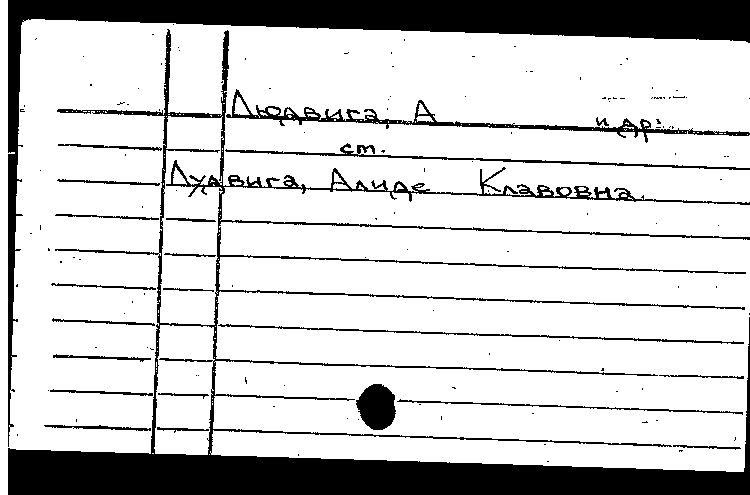 Людвига, А и др:
ст.
Лудвига, Алиде Клавовна.